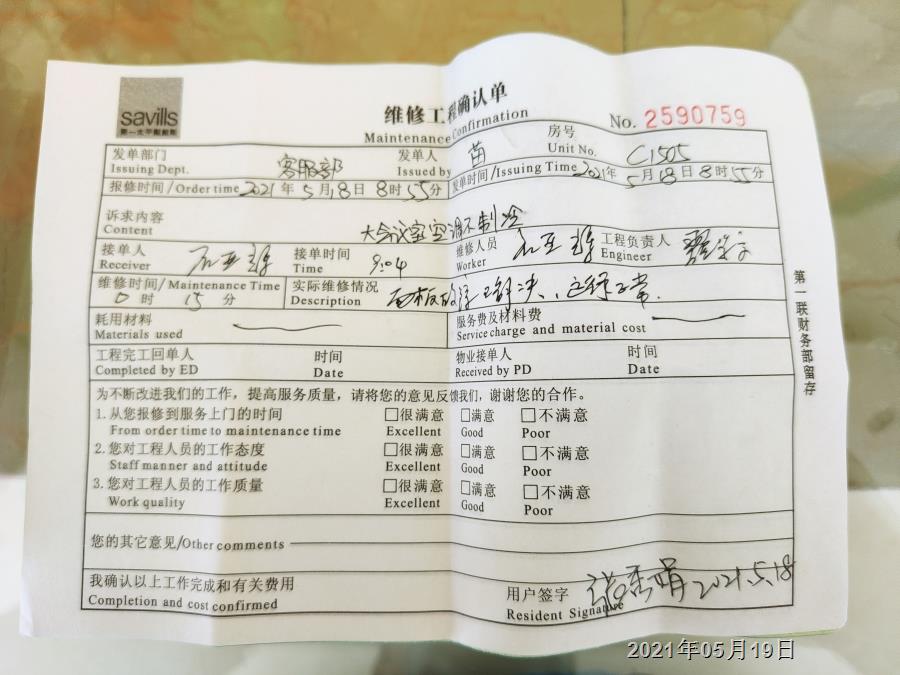 savills
第一太平戴维斯
维修工程确认单
Maintenance Confirmation
No. 2590759
发单部门 客服部 发单人 苗 房号 C1505
Issuing Dept. Issued by Unit No.
报修时间/Order time 2021年5月18日8时55分 发单时间/Issuing Time 2021年5月18日8时55分
诉求内容 大会议室空调不制冷
Content
接单人 接单时间 9:04 维修人员 工程负责人
Receiver Time Worker Engineer
维修时间/Maintenance Time 实际维修情况
0时15分 Description 运行正常.
耗用材料 服务费及材料费
Materials used Service charge and material cost
工程完工回单人 时间 物业接单人 时间
Completed by ED Date Received by PD Date
为不断改进我们的工作，提高服务质量，请将您的意见反馈我们，谢谢您的合作。
1.从您报修到服务上门的时间 □很满意 □满意 □不满意
From order time to maintenance time Excellent Good Poor
2.您对工程人员的工作态度 □很满意 □满意 □不满意
Staff manner and attitude Excellent Good Poor
3.您对工程人员的工作质量 □很满意 □满意 □不满意
Work quality Excellent Good Poor
您的其它意见/Other comments
我确认以上工作完成和有关费用
Completion and cost confirmed
用户签字 2021.5.18
Resident Signature
第一联财务部留存
2021年05月19日